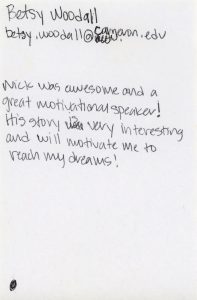 Betsy Woodall
betsy.woodall@cameron.edu
Nick was awesome and a
great motivational speaker!
His story was very interesting
and will motivate me to
reach my dreams!